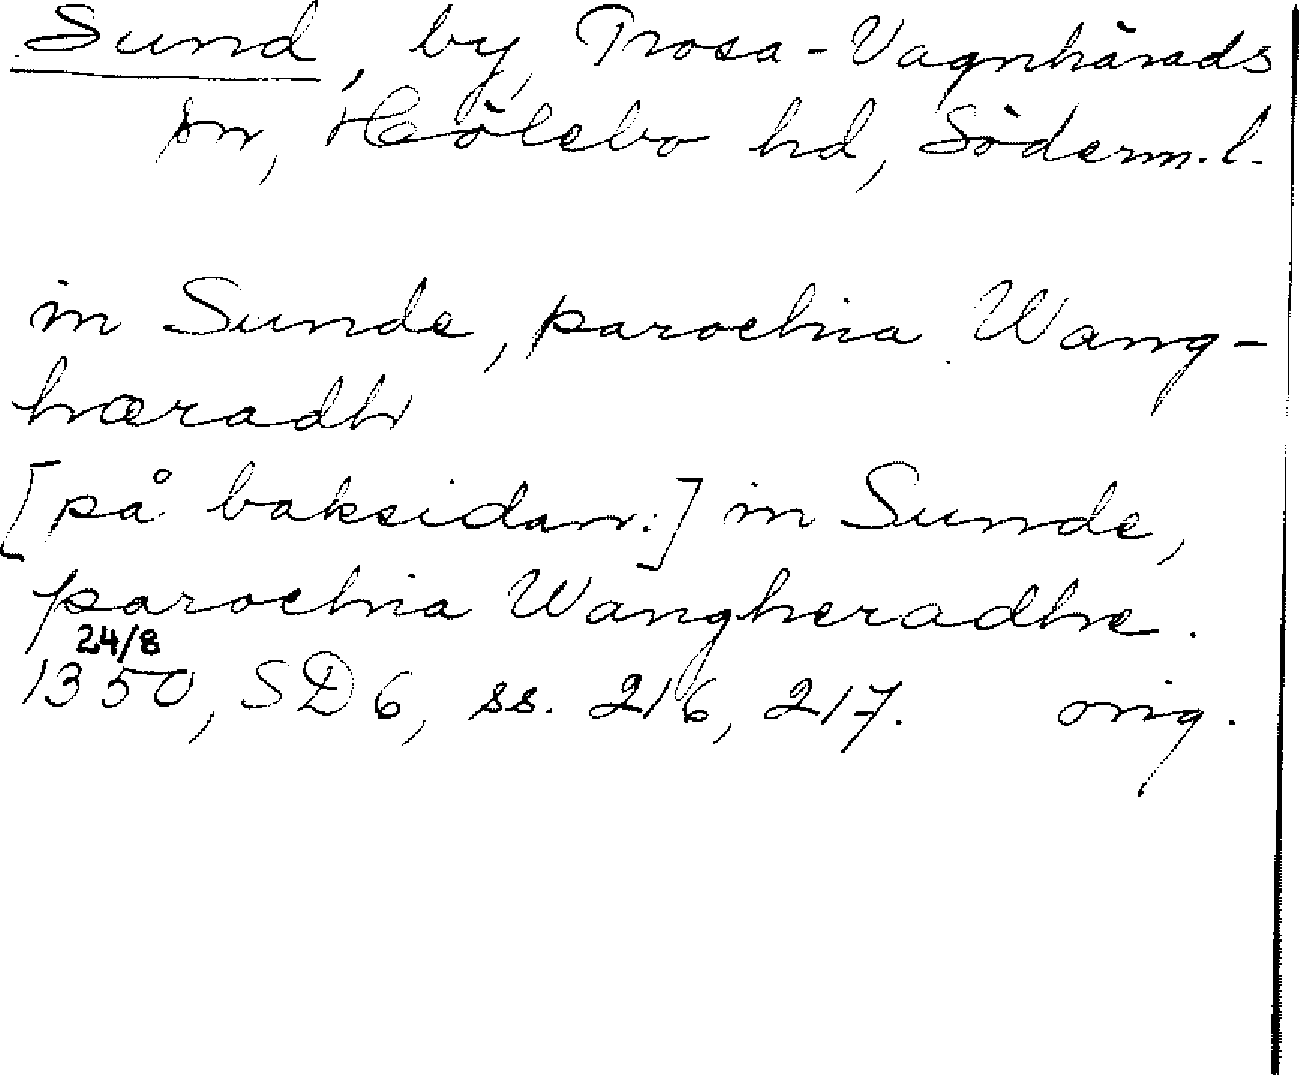 Sund, by, Trosa-Vagnhärads
sn, Hölebo hd, Söderm. l.
in Sunde, parochia Wang-
hæradh
[på baksidan:] in Sunde,
parochia Wangheradhe.
24/8
1350, SD 6, ss. 216, 217. orig.